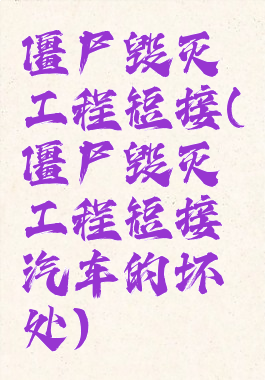 僵尸毁灭
工程短接(
僵尸毁灭
工程短接
汽车的坏
处)